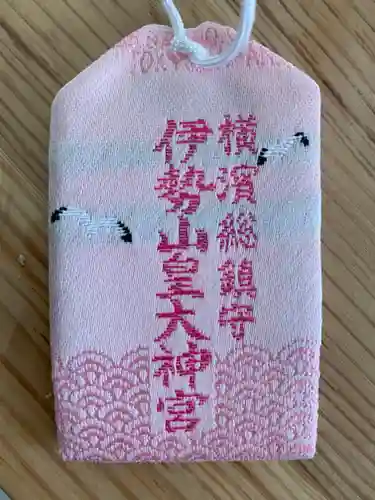 横濱総鎮守
伊勢山皇大神宮